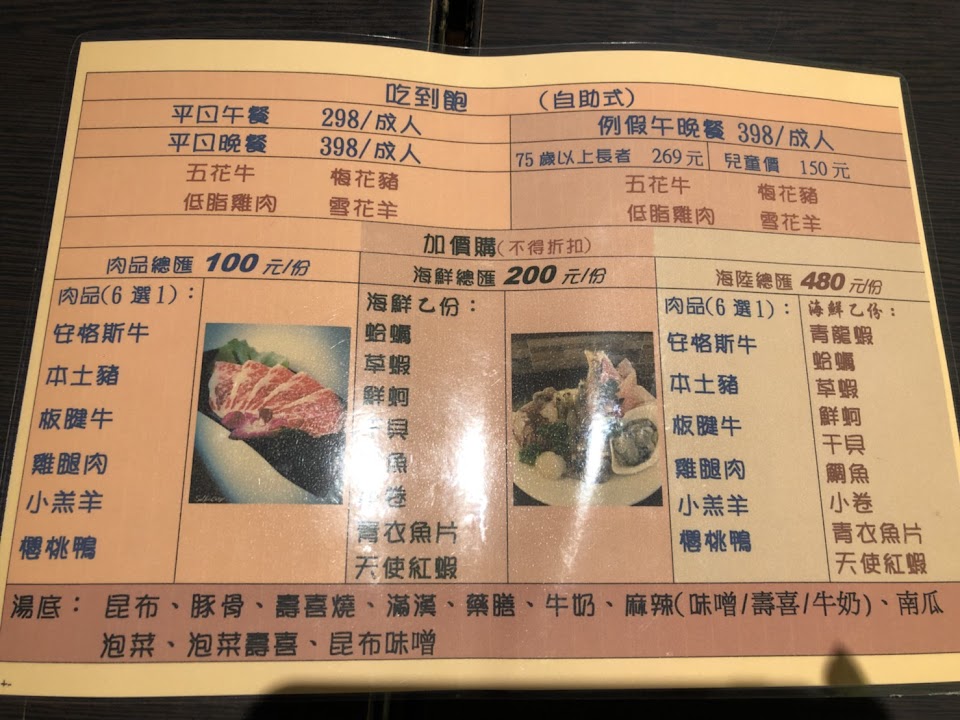 吃到飽 (自助式)
平日午餐 298/成人
平日晚餐 398/成人
五花牛 梅花豬
低脂雞肉 雪花羊
例假午晚餐 398/成人
75歲以上長者 269元 兒童價 150元
五花牛 梅花豬
低脂雞肉 雪花羊
加價購(不得折扣)
肉品總匯 100元/份
肉品(6選1):
安格斯牛
本土豬
板腱牛
雞腿肉
小羔羊
櫻桃鴨
海鮮總匯 200元/份
海鮮乙份:
蛤蠣
草蝦
鮮蚵
干貝
魚
小卷
青衣魚片
天使紅蝦
海陸總匯 480元/份
肉品(6選1):
安格斯牛
本土豬
板腱牛
雞腿肉
小羔羊
櫻桃鴨
海鮮乙份:
青龍蝦
蛤蠣
草蝦
鮮蚵
干貝
鯛魚
小卷
青衣魚片
天使紅蝦
湯底: 昆布、豚骨、壽喜燒、滿漢、藥膳、牛奶、麻辣(味噌/壽喜/牛奶)、南瓜
泡菜、泡菜壽喜、昆布味噌